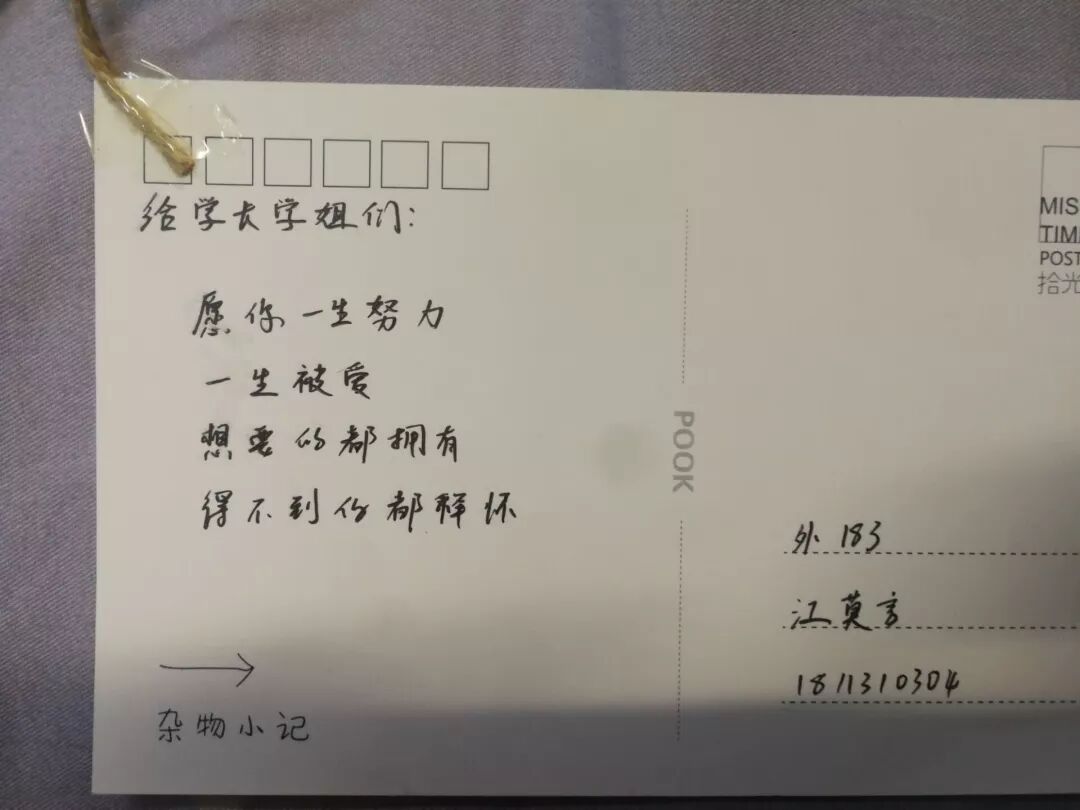 给学长学姐们:
愿你一生努力
一生被爱
想要的都拥有
得不到的都释怀
→
杂物小记
POOK
MIS
TIM
POST
拾光
外183
江莫言
1811310304